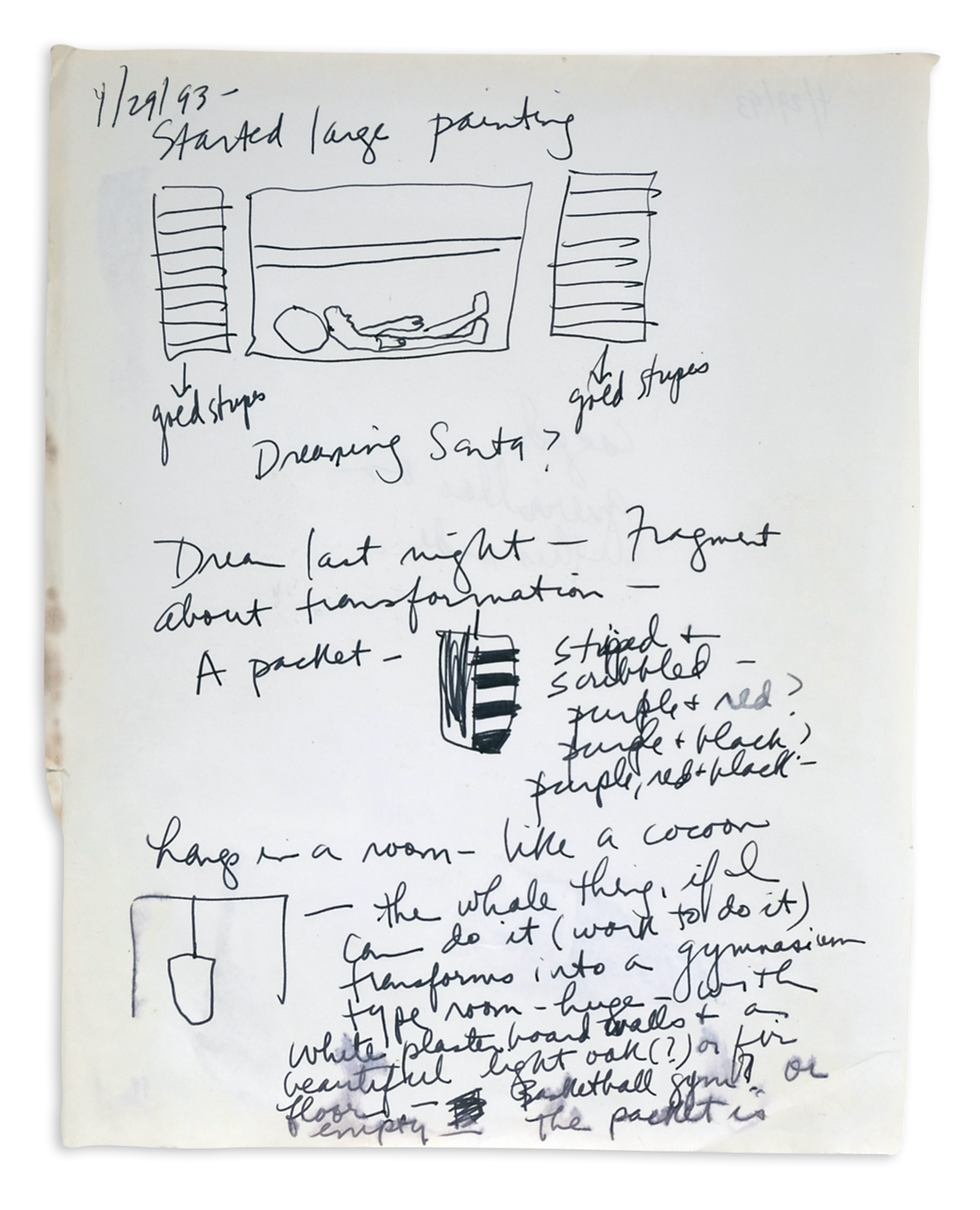 4/29/93 -
Started large painting
gold stripes
gold stripes
Dreaming Santa?
Dream last night - Fragment
about transformation -
A packet -
striped +
scribbled -
purple + red?
purple + black?
purple, red + black -
hangs in a room - like a cocoon
- the whole thing, if I
can do it (work to do it)
transforms into a gymnasium
type room - huge - with
white plaster board walls + a
beautiful light oak (?) or fir
floor - Basketball gym? or
empty - the packet is